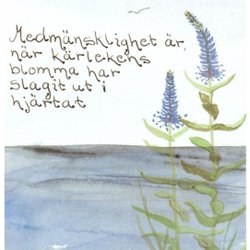 Medmänsklighet är,
när kärlekens
blomma har
slagit ut i
hjärtat